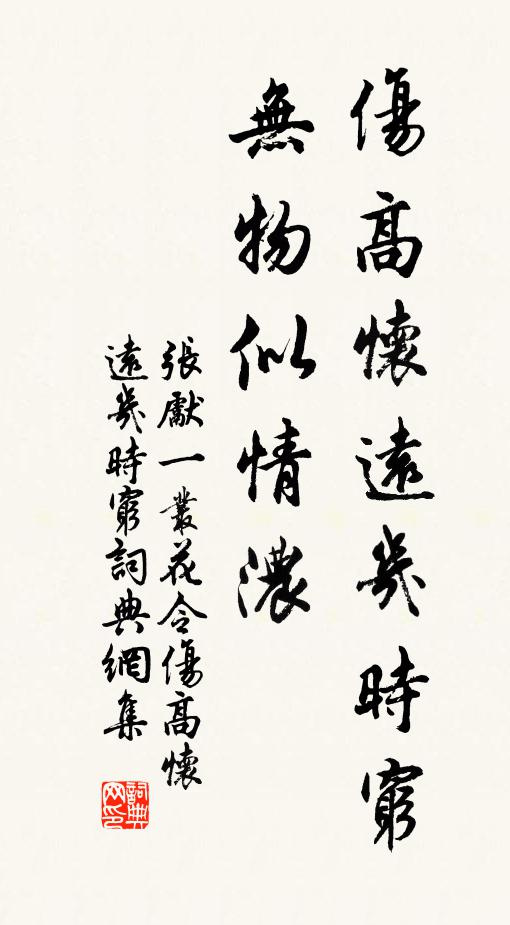 傷高懷遠幾時窮
無物似情濃
張獻一叢花令傷高懷
遠幾時窮詞典網集
詞典
网印